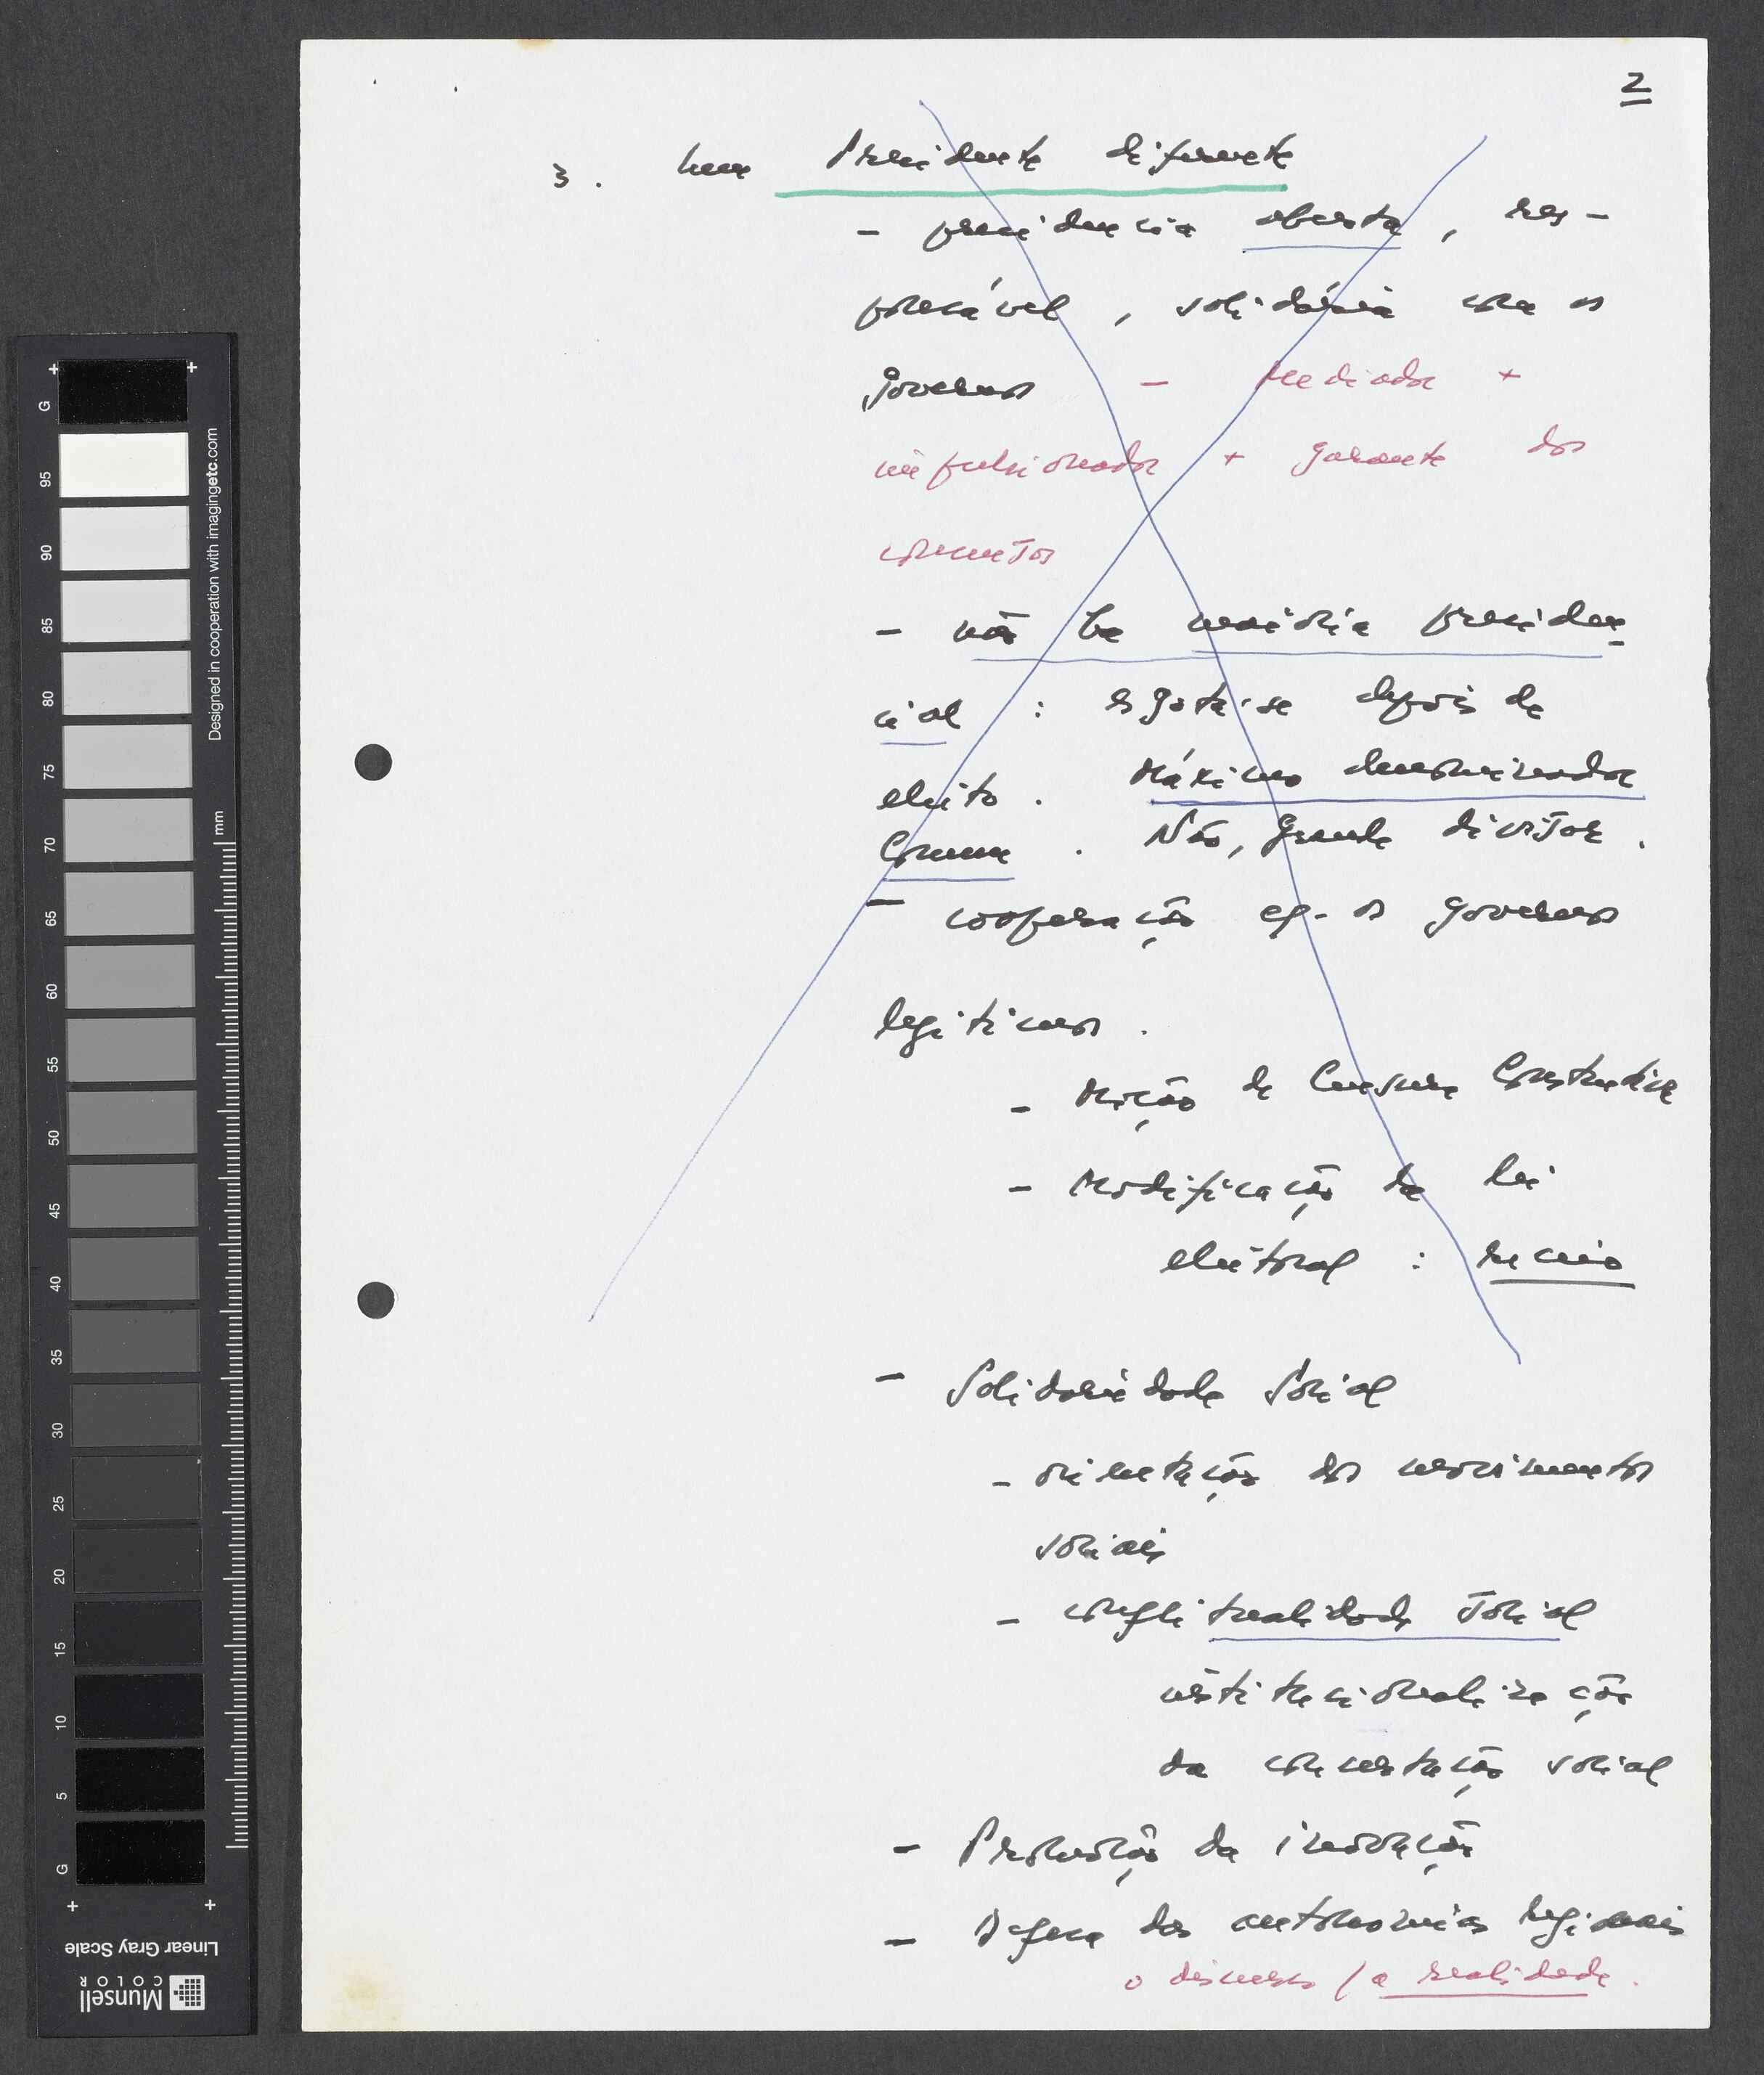 2
3. Um Presidente diferente
- presidencia aberta, res-
ponsável, solidária com o
governo - Mediador +
impulsionador + garante dos
consensos
- não há maioria presiden-
cial : esgota-se depois de
eleito. Máximo denominador
Comum. Não, grande divisor.
- cooperação c/ o governo
legitimo.
- Moção de Censura Construtiva
- Modificação da lei
eleitoral :
- Solidariedade Social
- orientação dos movimentos
sociais
- conflitualidade social
institucionalização
da concertação social
- Promoção da inovação
- Defesa das autonomias regionais
o discurso / a realidade.
+ +
G
95
90
85
80
75
70
65
60
55
50
45
40
35
30
25
20
15
10
5
G
+ +
mm
Designed in cooperation with imagingetc.com
Linear Gray Scale
Munsell
COLOR